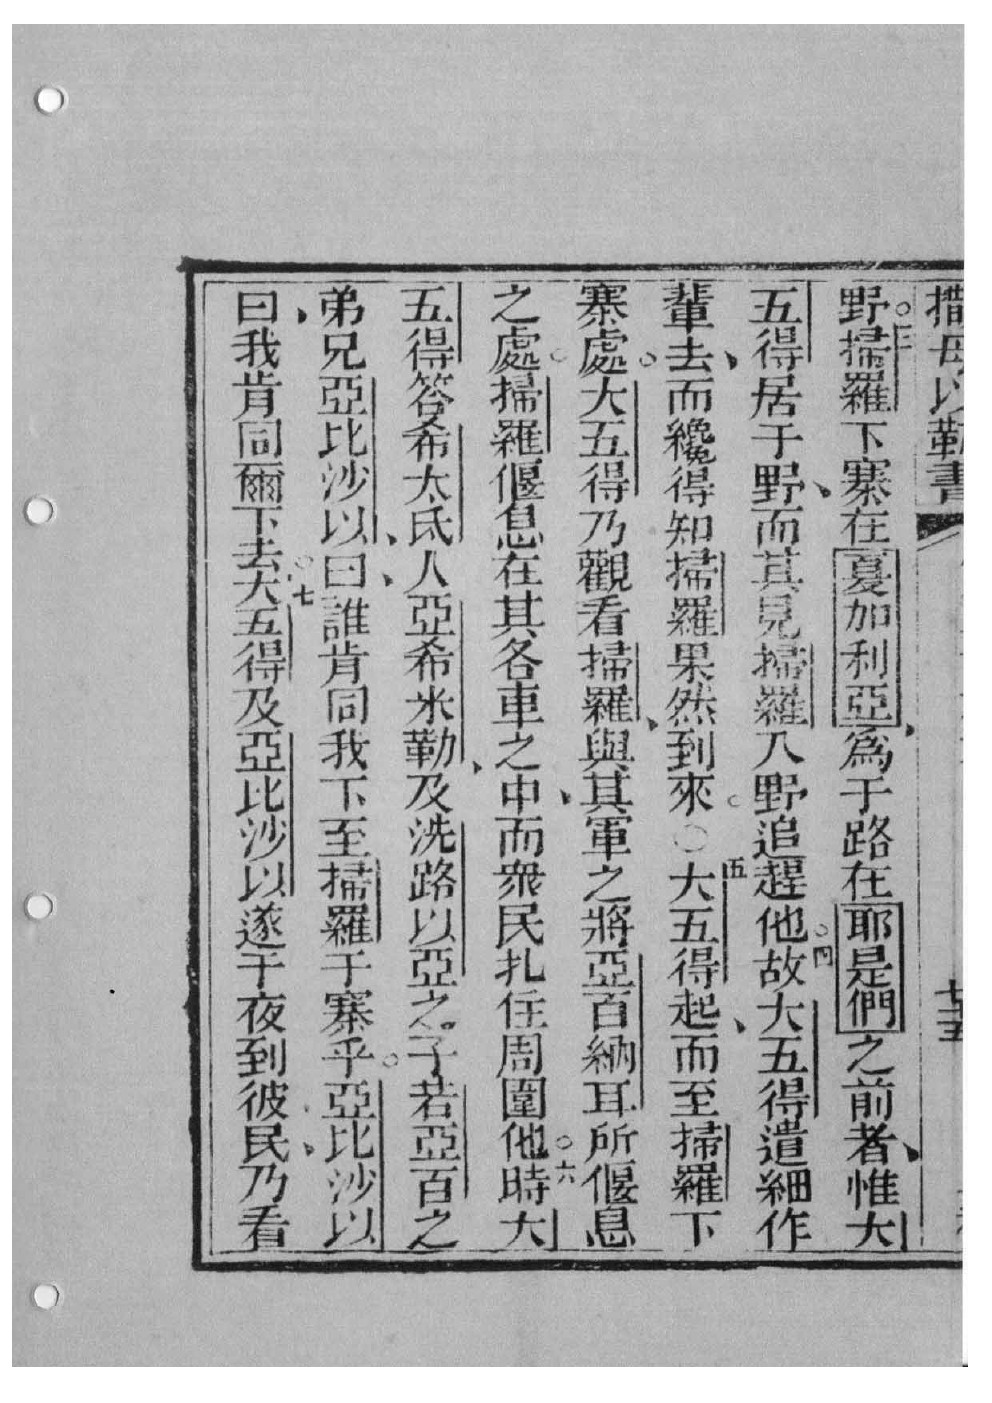 撒母以勒書
七十五
野○三掃羅下寨在戛加利亞、爲于路在耶是們之前者、惟大
五得居于野、而其見掃羅入野追趕他○四故大五得遣細作
輩去、而纔得知掃羅果然到來。○五大五得起、而至掃羅下
寨處。大五得乃觀看掃羅、與其軍之將亞百納耳所偃息
之處。掃羅偃息在其各車之中、而衆民扎住周圍他○六時大
五得答希太氐人亞希米勒、及洗路以亞之子若亞百之
弟兄亞比沙以、曰、誰肯同我下至掃羅于寨乎。亞比沙以
曰、我肯同爾下去○七大五得及亞比沙以遂于夜到彼民、乃看